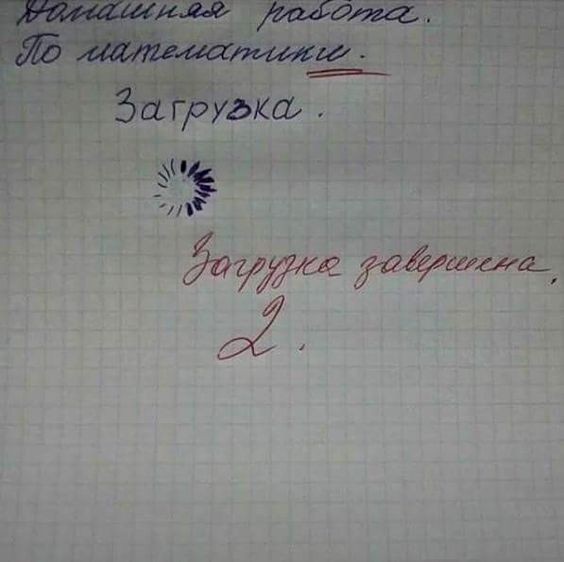 Домашняя работа.
По математики.
Загрузка.
Загрузка завершена.
2.